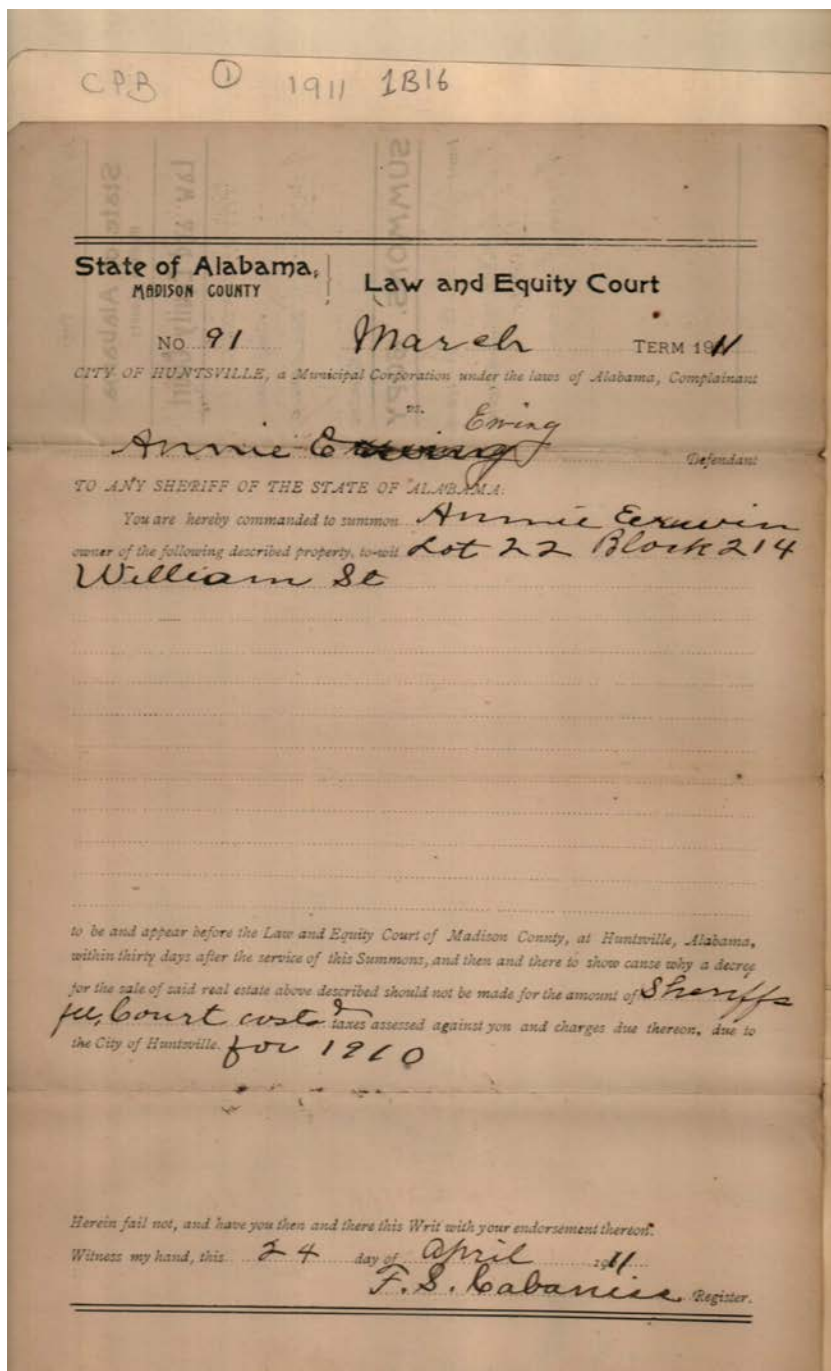 CPB ① 1911 1B16
State of Alabama, Law and Equity Court
MADISON COUNTY
No. 91 March TERM 1911
CITY OF HUNTSVILLE, a Municipal Corporation under the laws of Alabama, Complainant
vs. Ewing
Annie Defendant
TO ANY SHERIFF OF THE STATE OF ALABAMA:
You are hereby commanded to summon Annie Eruwin
owner of the following described property, to-wit Lot 22 Block 214
William St
to be and appear before the Law and Equity Court of Madison County, at Huntsville, Alabama,
within thirty days after the service of this Summons, and then and there to show cause why a decree
for the sale of said real estate above described should not be made for the amount of Sheriffs
fee, Court cost & taxes assessed against you and charges due thereon, due to
the City of Huntsville. for 1910
Herein fail not, and have you then and there this Writ with your endorsement thereon.
Witness my hand, this 24 day of April 1911
F. S. Cabaniss Register.